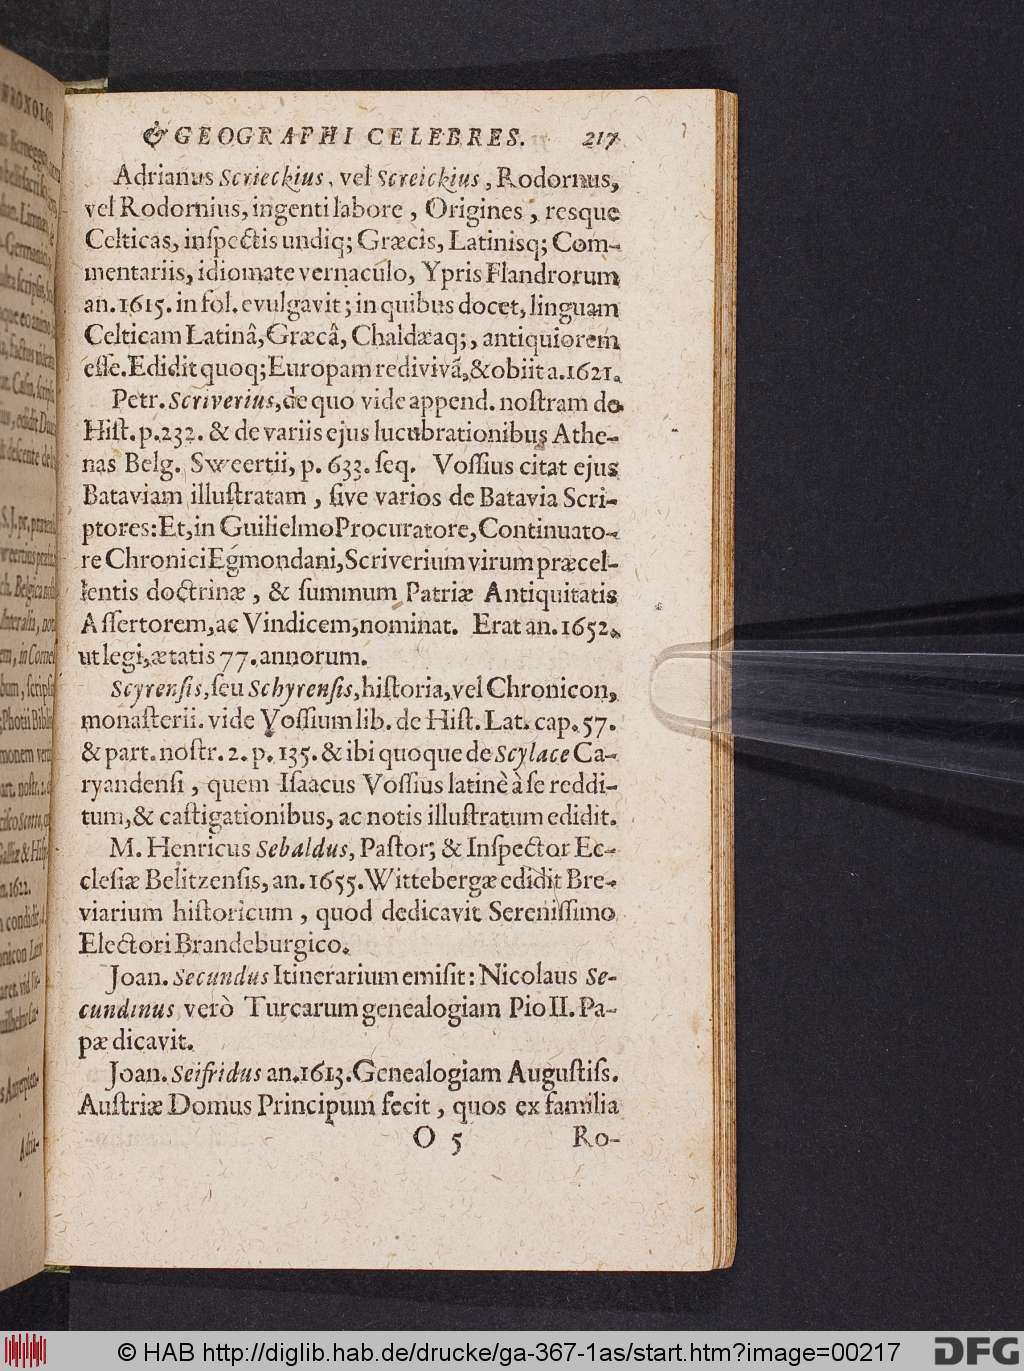 & GEOGRAPHI CELEBRES. 217
Adrianus Scrieckius, vel Screickius, Rodornus,
vel Rodornius, ingenti labore, Origines, resque
Celticas, inſpectis undiq; Græcis, Latinisq; Com-
mentariis, idiomate vernaculo, Ypris Flandrorum
an. 1615. in fol. evulgavit; in quibus docet, linguam
Celticam Latinâ, Græcâ, Chaldæaq;, antiquiorem
eſſe. Edidit quoq; Europam redivivã, & obiit a. 1621.
Petr. Scriverius, de quo vide append. noſtram de
Hiſt. p. 232. & de variis ejus lucubrationibus Athe-
nas Belg. Sweertii, p. 633. ſeq. Voſſius citat ejus
Bataviam illuſtratam, ſive varios de Batavia Scri-
ptores: Et, in Guilielmo Procuratore, Continuato-
re Chronici Egmondani, Scriverium virum præcel-
lentis doctrinæ, & ſummum Patriæ Antiquitatis
Aſſertorem, ac Vindicem, nominat. Erat an. 1652.
ut legi, ætatis 77. annorum.
Scyrenſis, ſeu Schyrenſis, hiſtoria, vel Chronicon,
monaſterii. vide Voſſium lib. de Hiſt. Lat. cap. 57.
& part. noſtr. 2. p. 135. & ibi quoque de Scylace Ca-
ryandenſi, quem Iſaacus Voſſius latinè à ſe reddi-
tum, & caſtigationibus, ac notis illuſtratum edidit.
M. Henricus Sebaldus, Paſtor, & Inſpector Ec-
cleſiæ Belitzenſis, an. 1655. Wittebergæ edidit Bre-
viarium hiſtoricum, quod dedicavit Sereniſſimo
Electori Brandeburgico.
Joan. Secundus Itinerarium emiſit: Nicolaus Se-
cundinus verò Turcarum genealogiam Pio II. Pa-
pæ dicavit.
Joan. Seifridus an. 1613. Genealogiam Auguſtiſs.
Auſtriæ Domus Principum fecit, quos ex familia
O 5 Ro-
© HAB http://diglib.hab.de/drucke/ga-367-1as/start.htm?image=00217
DFG